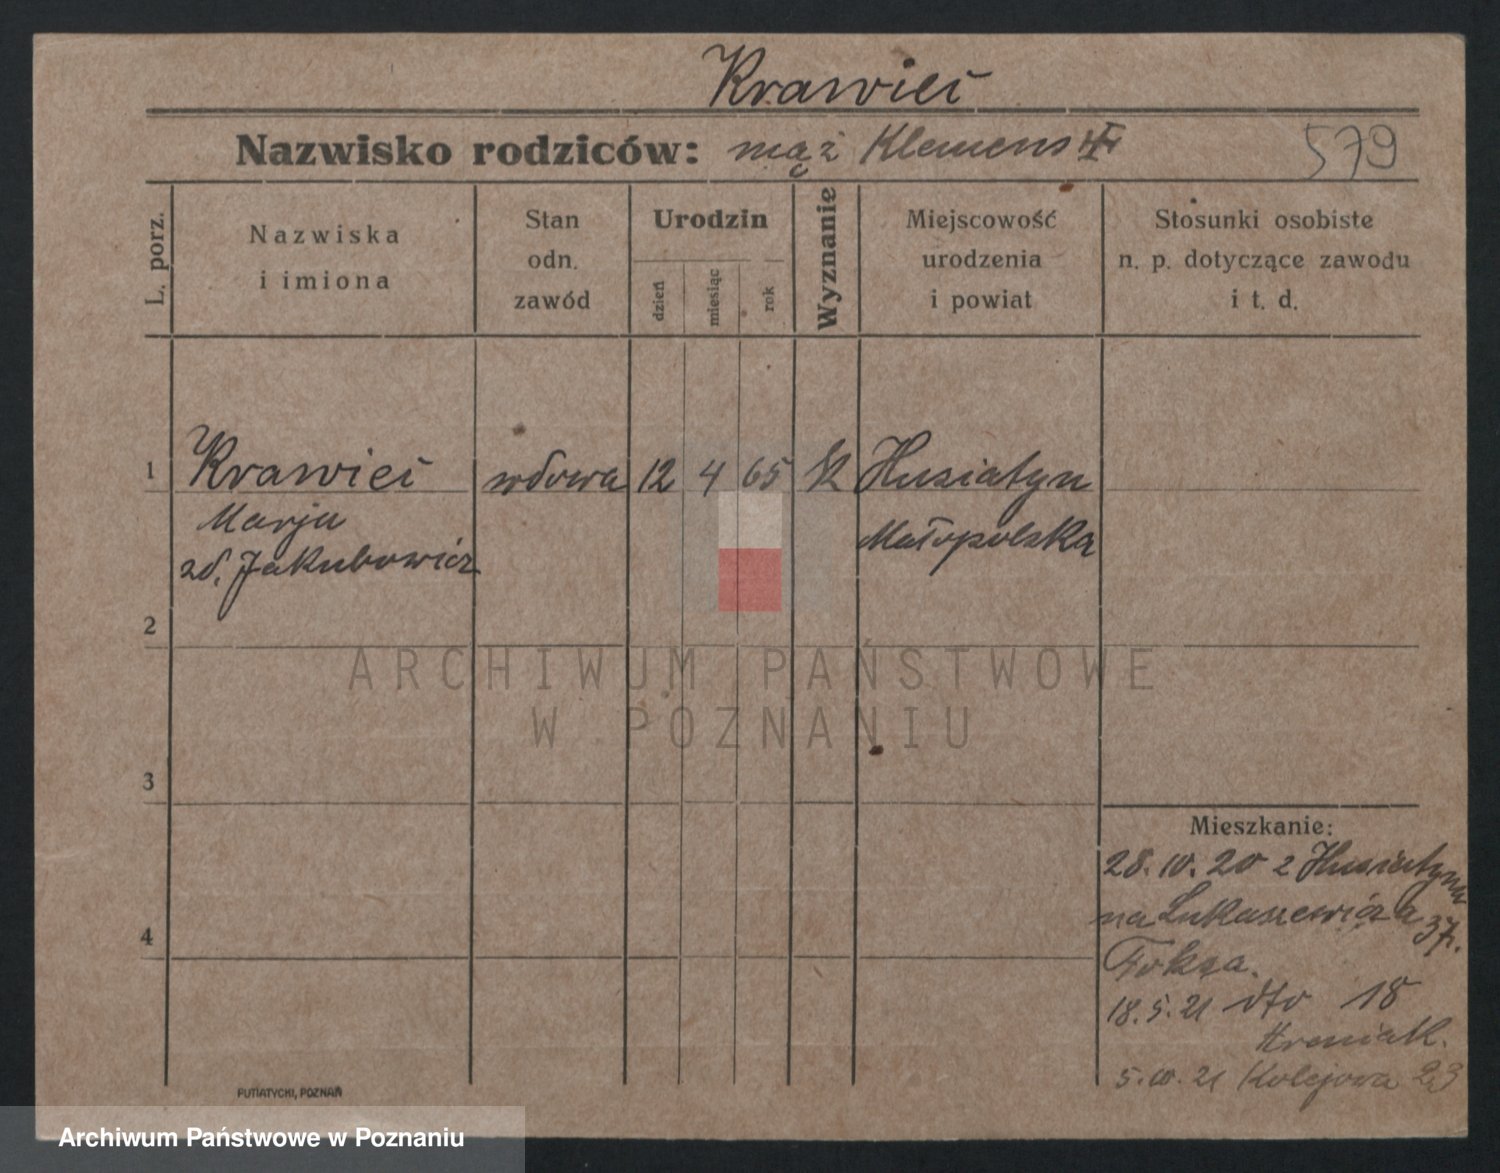 Krawiec
Nazwisko rodziców: mąż Klemens
579
L. porz.
Nazwiska
i imiona
Stan
odn.
zawód
Urodzin
dzień
miesiąc
rok
Wyznanie
Miejscowość
urodzenia
i powiat
Stosunki osobiste
n. p. dotyczące zawodu
i t. d.
1
Krawiec
wdowa
12
4
65
Husiatyn
Marja
Małopolska
zd. Jakubowicz
2
ARCHIWUM PAŃSTWOWE
W POZNANIU
3
Mieszkanie:
28. 10. 20 z Husiatyna
na Łukaszewicza 37.
4
18. 5. 21 dto 18
Hroniak.
5. 10. 21 Kolejowa 23
PUTIATYCKI, POZNAŃ
Archiwum Państwowe w Poznaniu